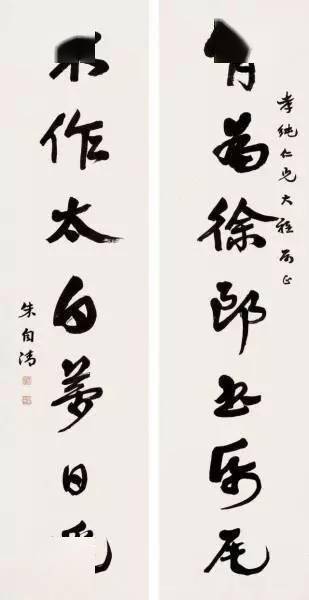 孝純仁兄大雅屬正
為徐郎書帋尾
作太白夢日
朱自清